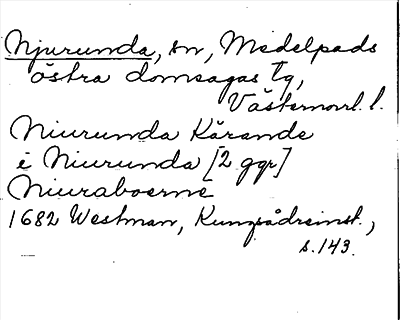 Njurunda, sn, Medelpads
östra domsagas tg,
Västernorrl. l.
Niurunda Kärande
i Niurunda [2 ggr]
Niuraboerne
1682 Westman, Kungsådreinst.,
s. 143.